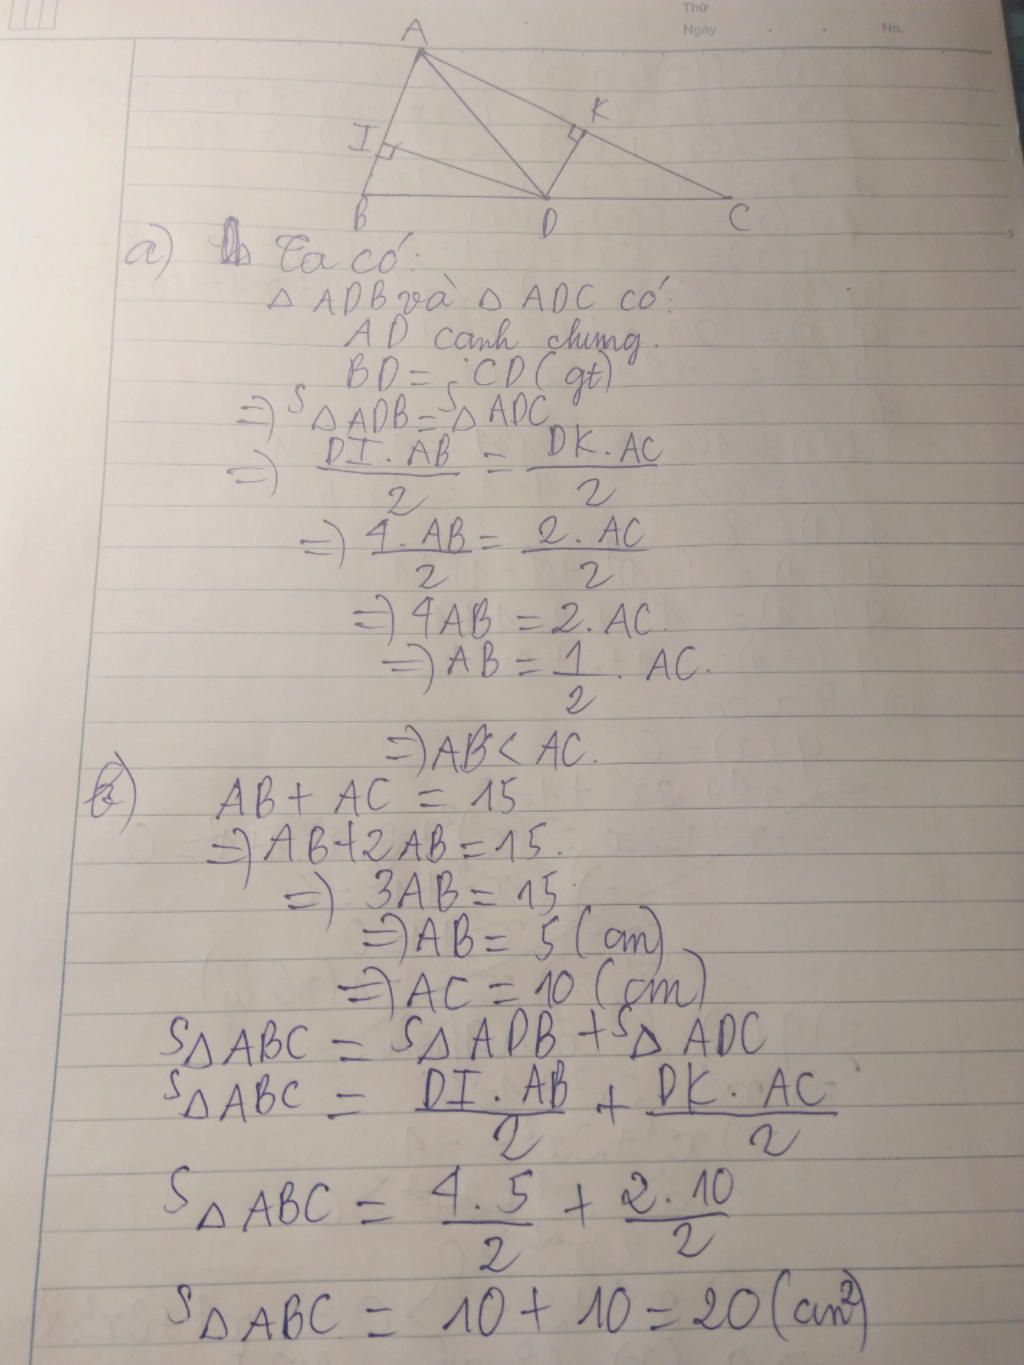 Thứ
Ngày . . No.
A
K
I
B D C
a) Ta có:
△ ADB và △ ADC có:
AD canh chung.
BD = CD (gt)
=> S△ADB = S△ADC
=> DI . AB / 2 = DK . AC / 2
=> 4 . AB / 2 = 2 . AC / 2
=> 4AB = 2 . AC.
=> AB = 1/2 . AC.
=> AB < AC.
b) AB + AC = 15
=> AB + 2AB = 15.
=> 3AB = 15
=> AB = 5 (cm)
=> AC = 10 (cm)
S△ABC = S△ADB + S△ADC
S△ABC = DI . AB / 2 + DK . AC / 2
S△ABC = 4 . 5 / 2 + 2 . 10 / 2
S△ABC = 10 + 10 = 20 (cm²)